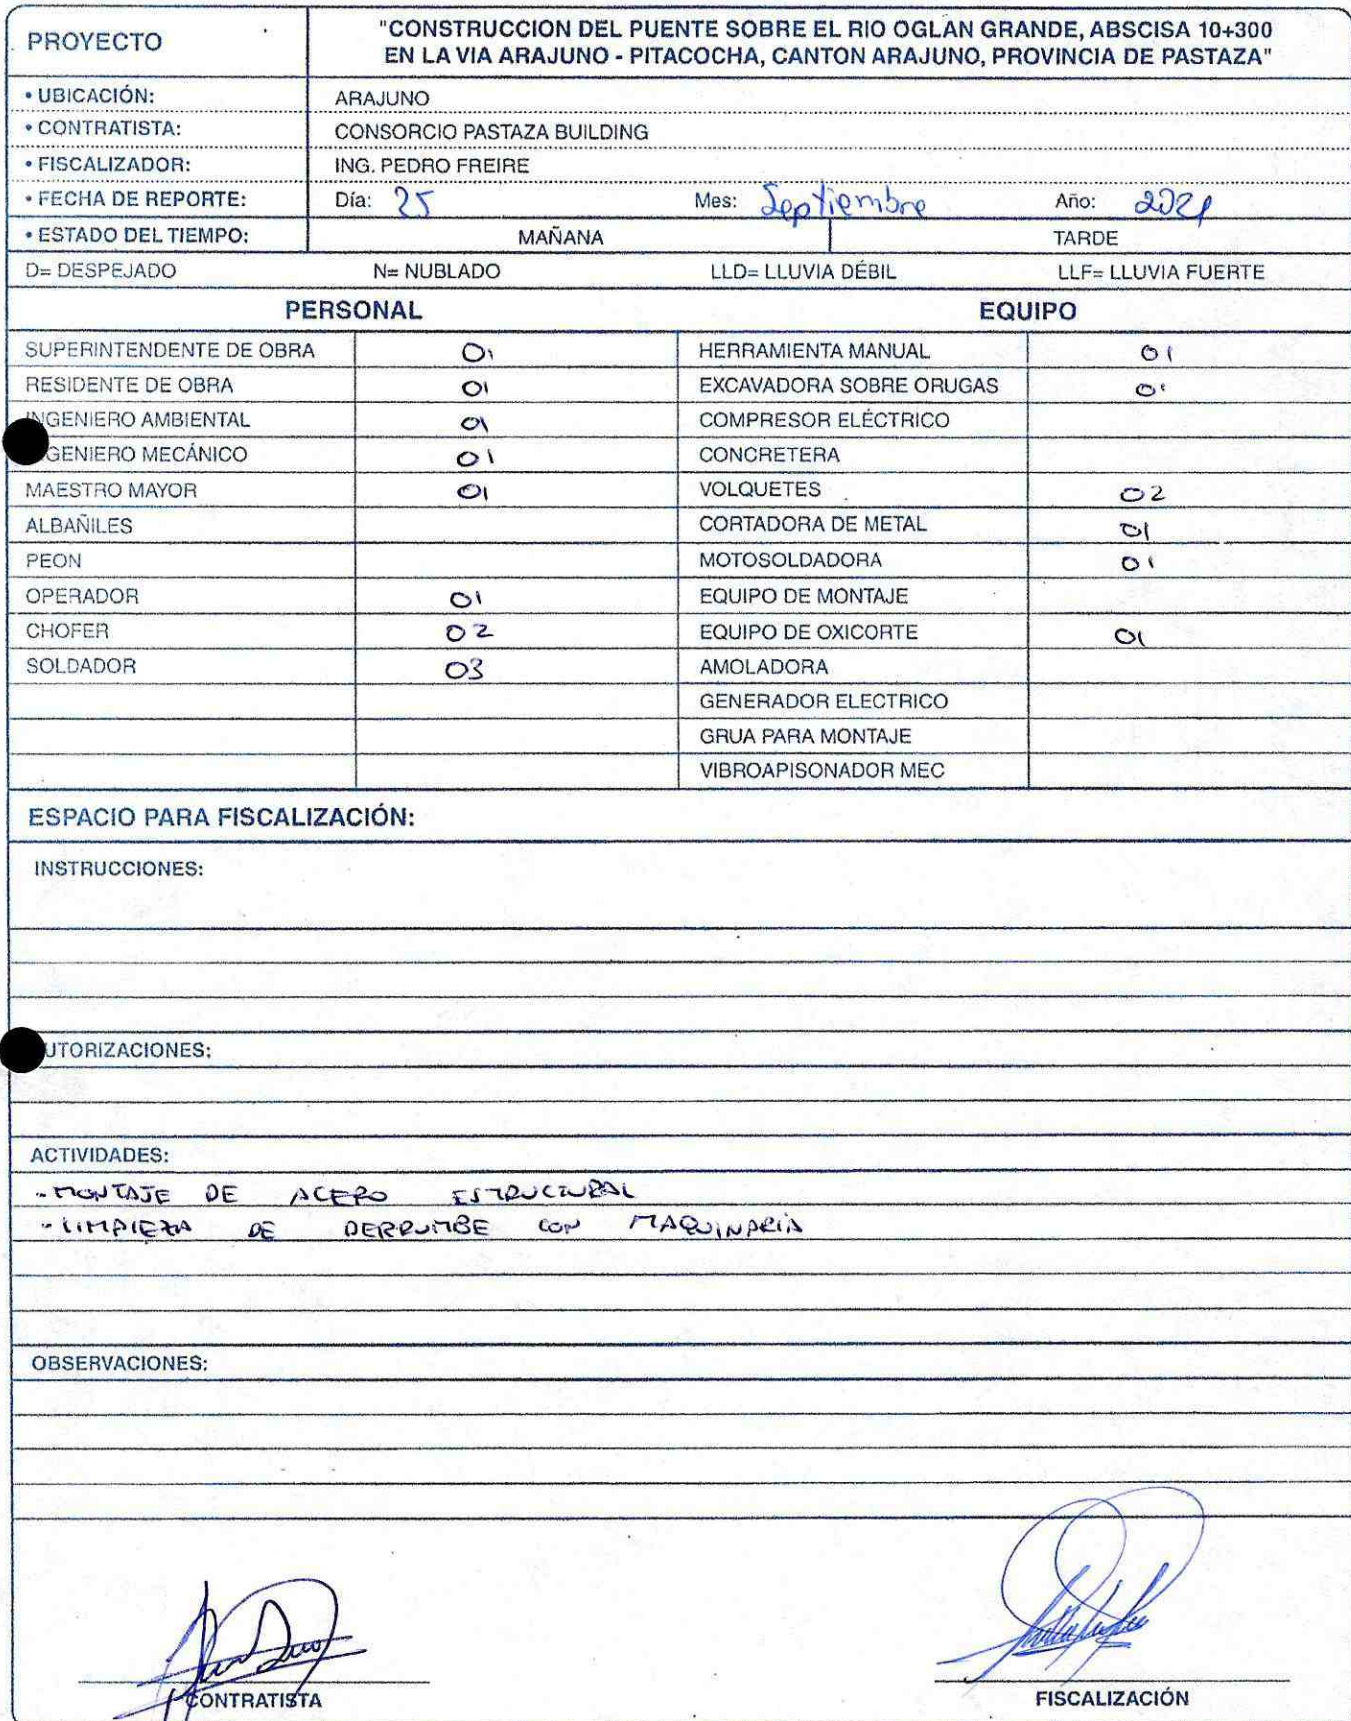 PROYECTO
"CONSTRUCCION DEL PUENTE SOBRE EL RIO OGLAN GRANDE, ABSCISA 10+300
EN LA VIA ARAJUNO - PITACOCHA, CANTON ARAJUNO, PROVINCIA DE PASTAZA"
• UBICACIÓN: ARAJUNO
• CONTRATISTA: CONSORCIO PASTAZA BUILDING
• FISCALIZADOR: ING. PEDRO FREIRE
• FECHA DE REPORTE: Día: 25 Mes: Septiembre Año:
• ESTADO DEL TIEMPO: MAÑANA TARDE
D= DESPEJADO N= NUBLADO LLD= LLUVIA DÉBIL LLF= LLUVIA FUERTE
PERSONAL EQUIPO
SUPERINTENDENTE DE OBRA 01 HERRAMIENTA MANUAL 01
RESIDENTE DE OBRA 01 EXCAVADORA SOBRE ORUGAS 01
NGENIERO AMBIENTAL 01 COMPRESOR ELÉCTRICO
GENIERO MECÁNICO 01 CONCRETERA
MAESTRO MAYOR 01 VOLQUETES 02
ALBAÑILES CORTADORA DE METAL 01
PEON MOTOSOLDADORA 01
OPERADOR 01 EQUIPO DE MONTAJE
CHOFER 02 EQUIPO DE OXICORTE 01
SOLDADOR 03 AMOLADORA
GENERADOR ELECTRICO
GRUA PARA MONTAJE
VIBROAPISONADOR MEC
ESPACIO PARA FISCALIZACIÓN:
INSTRUCCIONES:
UTORIZACIONES:
ACTIVIDADES:
- MONTAJE DE ACERO ESTRUCTURAL
- LIMPIEZA DE DERRUMBE CON MAQUINARIA
OBSERVACIONES:
CONTRATISTA FISCALIZACIÓN